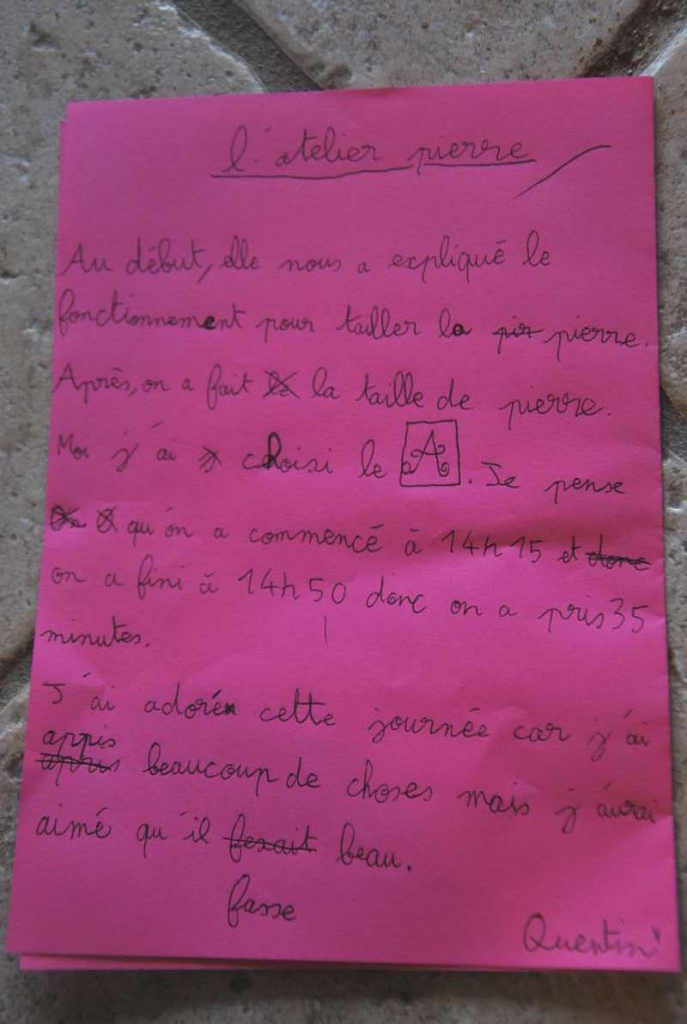 l'atelier pierre
Au début, elle nous a expliqué le
fonctionnement pour tailler la pir pierre.
Après, on a fait la taille de pierre.
Moi j'ai choisi le A. Je pense
qu'on a commencé à 14h15 et donc
on a fini à 14h50 donc on a pris 35
minutes.
J'ai adoré cette journée car j'ai
appis
apris beaucoup de choses mais j'aurai
aimé qu'il ferait beau.
fasse
Quentin